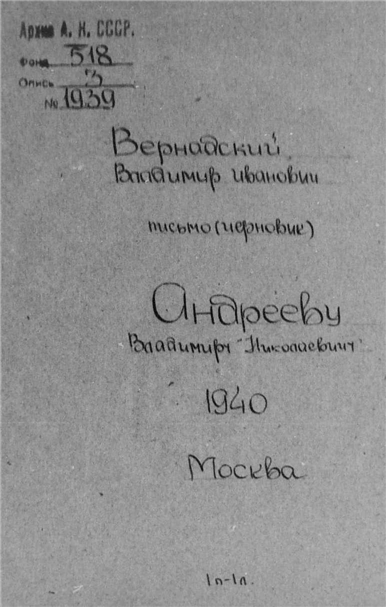 Архив А. Н. СССР.
Фонд 518
Опись 3
№ 1939
Вернадский
Владимир Иванович
письмо (черновик)
Андрееву
Владимиру Николаевичу
1940
Москва
1п-1л.